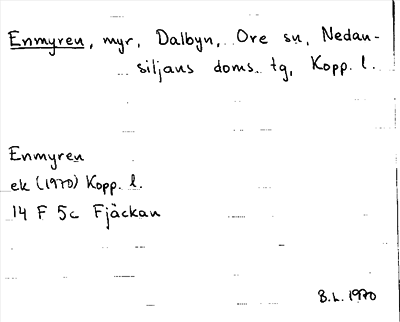 Enmyren, myr, Dalbyn, Ore sn, Nedan-
siljans doms. tg, Kopp. l.
Enmyren
ek (1970) Kopp. l.
14 F 5c Fjäckan
B.L. 1970